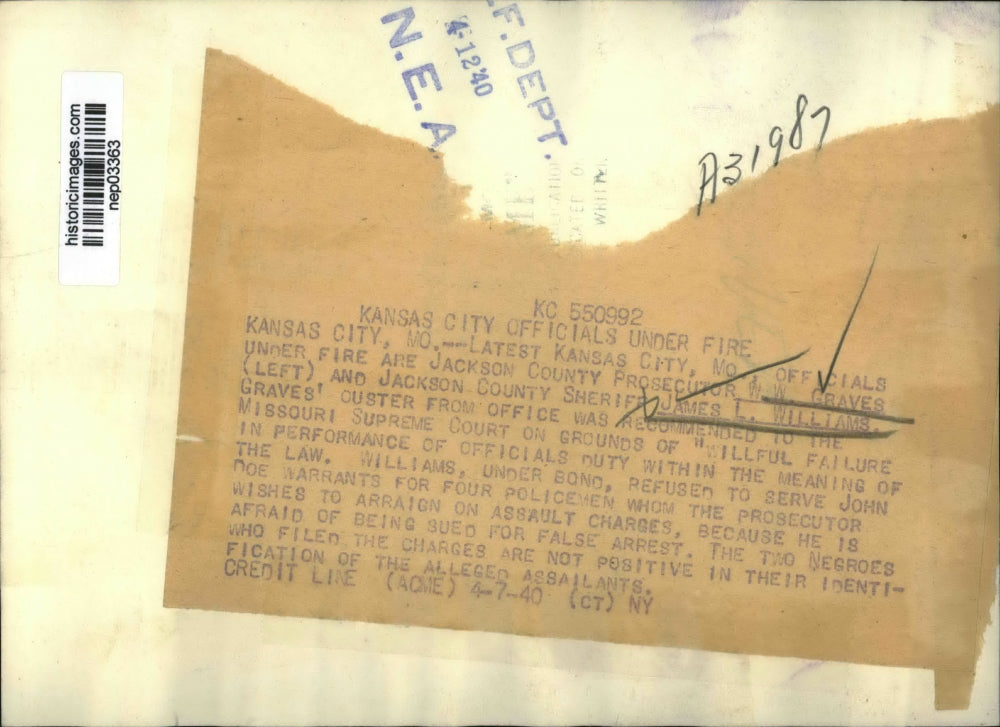 historicimages.com
nep03363
F. DEPT.
4-12'40
N.E.A.
A31987
KC 550992
KANSAS CITY OFFICIALS UNDER FIRE
KANSAS CITY, MO.--LATEST KANSAS CITY, MO., OFFICIALS
UNDER FIRE ARE JACKSON COUNTY PROSECUTOR W.W. GRAVES
(LEFT) AND JACKSON COUNTY SHERIFF JAMES L. WILLIAMS.
GRAVES' OUSTER FROM OFFICE WAS RECOMMENDED TO THE
MISSOURI SUPREME COURT ON GROUNDS OF "WILLFUL FAILURE
IN PERFORMANCE OF OFFICIALS DUTY WITHIN THE MEANING OF
THE LAW. WILLIAMS, UNDER BOND, REFUSED TO SERVE JOHN
DOE WARRANTS FOR FOUR POLICEMEN WHOM THE PROSECUTOR
WISHES TO ARRAIGN ON ASSAULT CHARGES, BECAUSE HE IS
AFRAID OF BEING SUED FOR FALSE ARREST. THE TWO NEGROES
WHO FILED THE CHARGES ARE NOT POSITIVE IN THEIR IDENTI-
FICATION OF THE ALLEGED ASSAILANTS.
CREDIT LINE (ACME) 4-7-40 (CT) NY